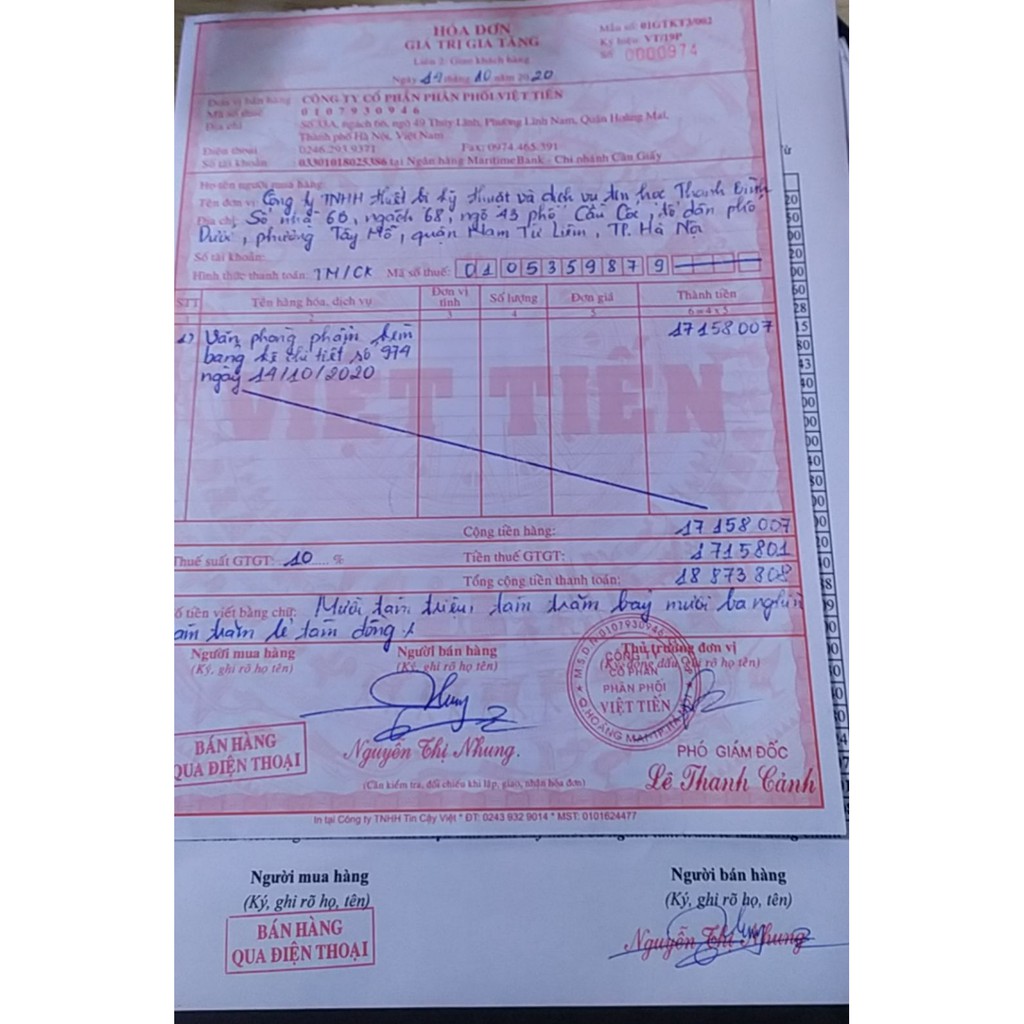 HÓA ĐƠN
GIÁ TRỊ GIA TĂNG
Liên 2: Giao khách hàng
Ngày 14 tháng 10 năm 2020
Mẫu số: 01GTKT3/002
Ký hiệu: VT/19P
Số: 0000974
Đơn vị bán hàng CÔNG TY CỔ PHẦN PHÂN PHỐI VIỆT TIẾN
Mã số thuế 0107930946
Địa chỉ Số 33A, ngách 66, ngõ 49 Thúy Lĩnh, Phường Lĩnh Nam, Quận Hoàng Mai,
Thành phố Hà Nội, Việt Nam
Điện thoại 0246.293.9371 Fax: 0974.465.391
Số tài khoản: 03301018025386 tại Ngân hàng MaritimeBank - Chi nhánh Cầu Giấy
Họ tên người mua hàng:
Tên đơn vị: Công ty TNHH thiết bị kỹ thuật và dịch vụ tin học Thanh Bình
Địa chỉ: Số nhà 6B, ngách 68, ngõ 43 phố Cầu Cốc, tổ dân phố
Dưới, phường Tây Mỗ, quận Nam Từ Liêm, TP. Hà Nội
Số tài khoản:
Hình thức thanh toán: TM/CK Mã số thuế: 0105359879
STT Tên hàng hóa, dịch vụ Đơn vị tính Số lượng Đơn giá Thành tiền
1 2 3 4 5 6=4x5
1) Văn phòng phẩm kèm 17 158 007
bảng kê chi tiết số 974
ngày 14/10/2020
VIỆT TIẾN
Cộng tiền hàng: 17 158 007
Thuế suất GTGT: 10 % Tiền thuế GTGT: 1 715 801
Tổng cộng tiền thanh toán: 18 873 808
Số tiền viết bằng chữ: Mười tám triệu, tám trăm bảy mươi ba nghìn
tám trăm lẻ tám đồng
Người mua hàng Người bán hàng Thủ trưởng đơn vị
(Ký, ghi rõ họ tên) (Ký, ghi rõ họ tên) (Ký đóng dấu, ghi rõ họ tên)
M.S.D.N:0107930946
CÔNG TY
CỔ PHẦN
PHÂN PHỐI
VIỆT TIẾN
Q.HOÀNG MAI-TP.HÀ NỘI
BÁN HÀNG
QUA ĐIỆN THOẠI
Nguyễn Thị Nhung.
PHÓ GIÁM ĐỐC
Lê Thanh Cảnh
(Cần kiểm tra, đối chiếu khi lập, giao, nhận hóa đơn)
In tại Công ty TNHH Tin Cậy Việt * ĐT: 0243 932 9014 * MST: 0101624477
Người mua hàng Người bán hàng
(Ký, ghi rõ họ, tên) (Ký, ghi rõ họ, tên)
BÁN HÀNG
QUA ĐIỆN THOẠI
Nguyễn Thị Nhung